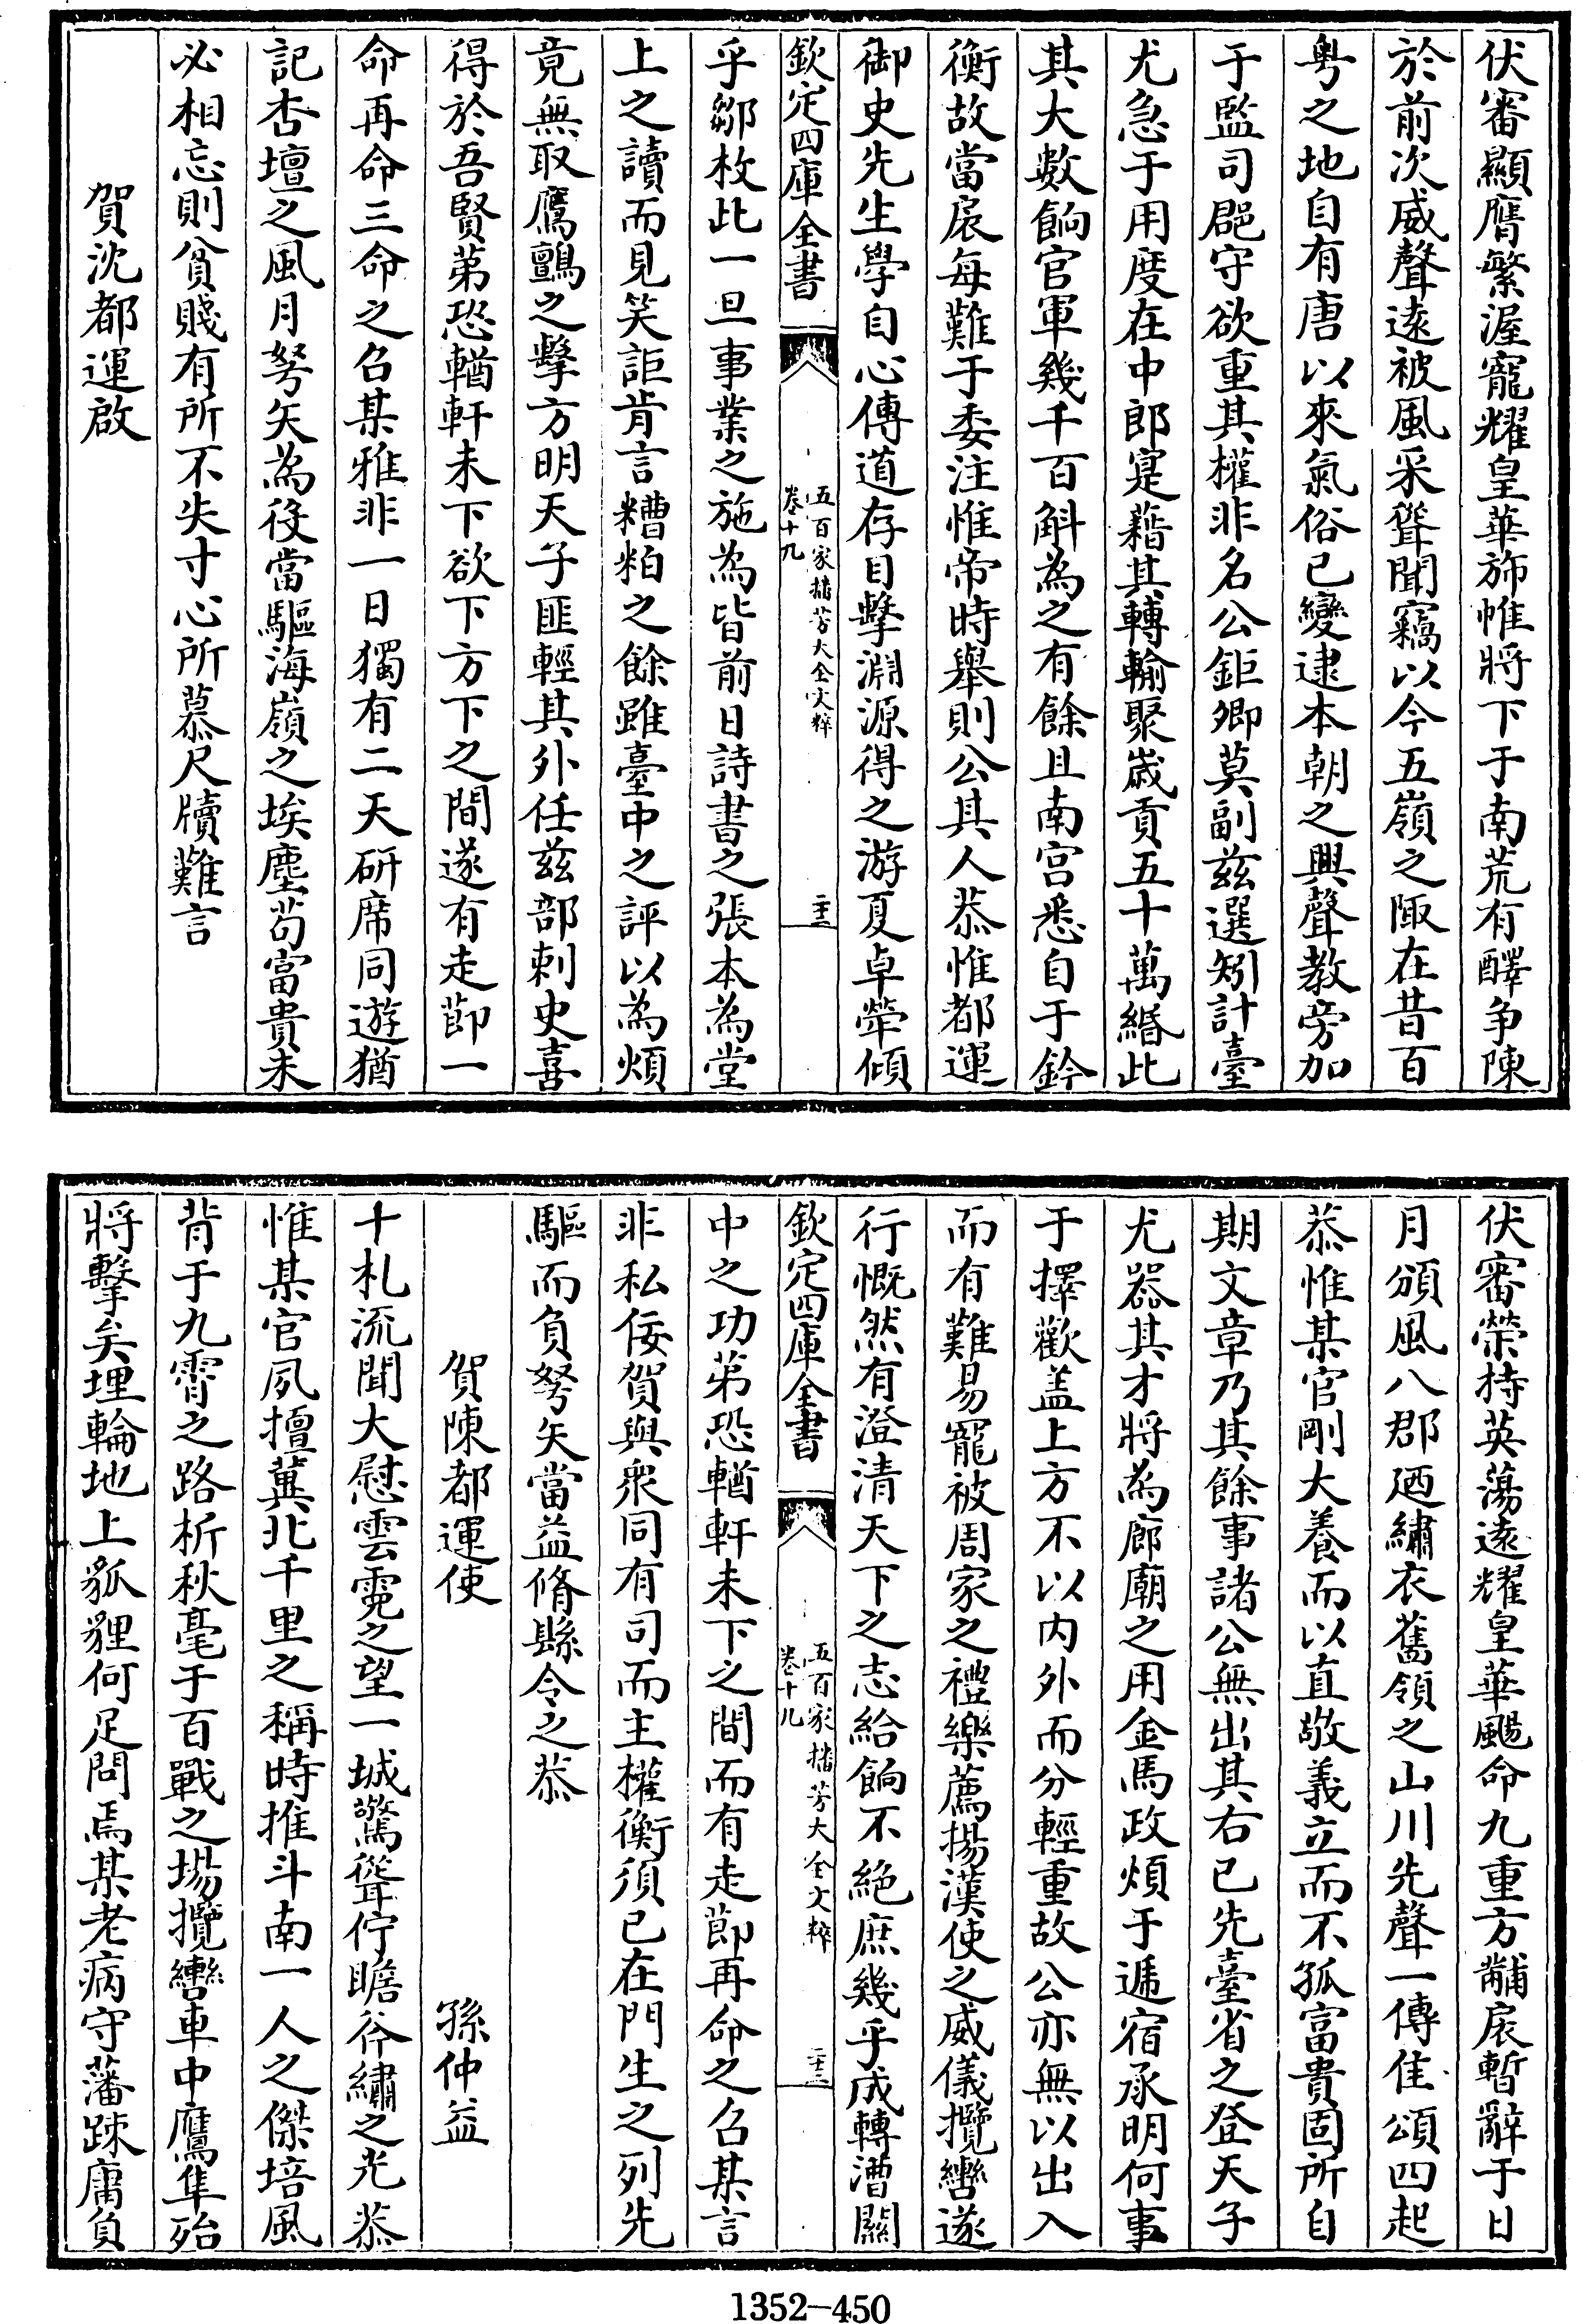 伏審顯膺繁渥寵耀皇華斾帷將下于南荒有醳争陳
於前次威聲遠被風采聳聞竊以今五嶺之陬在昔百
粤之地自有唐以來氣俗已變逮本朝之興聲教旁加
于監司郡守欲重其權非名公鉅卿莫副兹選矧計臺
尤急于用度在中郎寔藉其轉輸聚嵗貢五十萬緡此
其大數餉官軍幾千百斛為之有餘且南宫悉自于鈐
衡故當扆每難于委注惟帝時舉則公其人恭惟都運
御史先生學自心傳道存目擊淵源得之游夏卓犖傾
欽定四庫全書
五百家播芳大全文粹
卷十九
二十三
乎鄒枚此一旦事業之施為皆前日詩書之張本為堂
上之讀而見笑詎肯言糟粕之餘雖臺中之評以為煩
竟無取鷹鸇之擊方明天子匪輕其外任兹部刺史喜
得於吾賢第恐輶軒未下欲下方下之間遂有走節一
命再命三命之召某雅非一日獨有二天研席同遊猶
記杏壇之風月弩矢為役當驅海嶺之埃塵茍富貴未
必相忘則貧賤有所不失寸心所慕尺牘難言
賀沈都運啟
伏審榮持英蕩遠耀皇華颺命九重方黼扆暫辭于日
月頒風八郡廼繡衣舊領之山川先聲一傳佳頌四起
恭惟某官剛大養而以直敬義立而不孤富貴固所自
期文章乃其餘事諸公無出其右已先臺省之登天子
尤器其才將為廊廟之用金馬政煩于遞宿承明何事
于擇歡盖上方不以内外而分輕重故公亦無以出入
而有難易寵被周家之禮樂薦揚漢使之威儀攬轡遂
行慨然有澄清天下之志給餉不絶庶幾乎成轉漕關
欽定四庫全書
五百家播芳大全文粹
卷十九
二十三
中之功第恐輶軒未下之間而有走節再命之召某言
非私佞賀與衆同有司而主權衡須已在門生之列先
驅而負弩矢當益脩縣令之恭
賀陳都運使 孫仲益
十札流聞大慰雲霓之望一城驚聳佇瞻斧繡之光恭
惟某官夙擅冀北千里之稱時推斗南一人之傑培風
背于九霄之路析秋毫于百戰之場攬轡車中鷹隼殆
將擊矣埋輪地上狐狸何足問焉某老病守藩踈庸負
1352-450